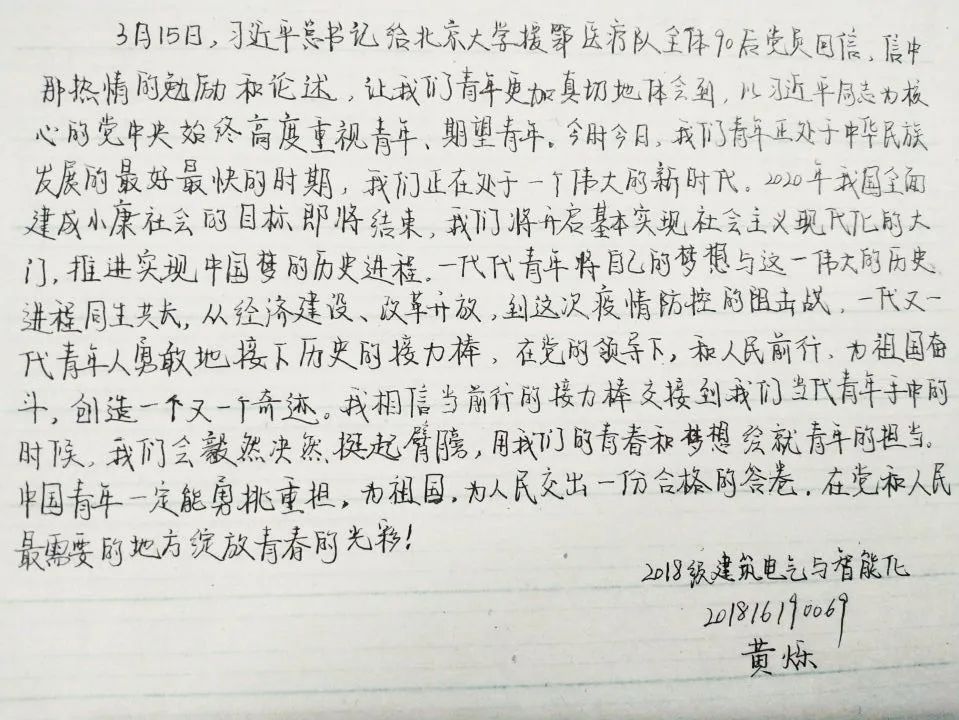 3月15日，习近平总书记给北京大学援鄂医疗队全体90后党员回信，信中
那热情的勉励和论述，让我们青年更加真切地体会到，以习近平同志为核
心的党中央始终高度重视青年、期望青年。今时今日，我们青年正处于中华民族
发展的最好最快的时期，我们正在处于一个伟大的新时代。2020年我国全面
建成小康社会的目标即将结束，我们将开启基本实现社会主义现代化的大
门，推进实现中国梦的历史进程。一代代青年将自己的梦想与这一伟大的历史
进程同生共长，从经济建设、改革开放，到这次疫情防控的阻击战，一代又一
代青年人勇敢地接下历史的接力棒，在党的领导下，和人民前行，为祖国奋
斗，创造一个又一个奇迹。我相信当前行的接力棒交接到我们当代青年手中的
时候，我们会毅然决然挺起臂膀，用我们的青春和梦想绘就青年的担当。
中国青年一定能勇挑重担，为祖国，为人民交出一份合格的答卷，在党和人民
最需要的地方绽放青春的光彩！
2018级建筑电气与智能化
201816190069
黄烁